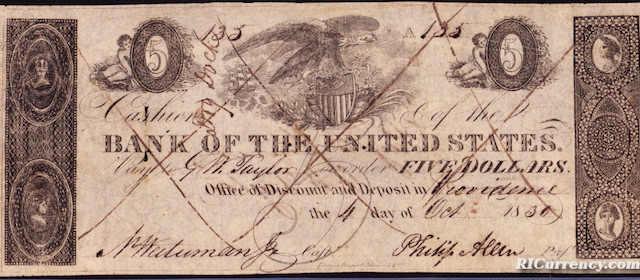 135 A 135
5 5
Cashier of the
BANK OF THE UNITED STATES.
Pay to G. W. Taylor or order FIVE DOLLARS.
Office of Discount and Deposit in Providence
the 4 day of Oct 1830
Philip Allen
RICurrency.com